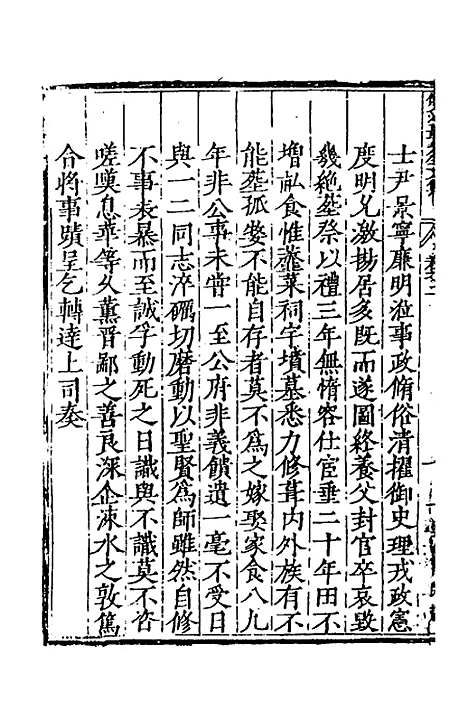 士尹景寧廉明涖事政脩俗清擢御史理戎政憲
度明允激揚居多既而遂圖終養父封官卒哀毀
幾絶塟祭以禮三年無惰容仕宦垂二十年田不
增畆食惟虀菜祠宇墳墓悉力修葺内外族有不
能塟孤嫠不能自存者莫不爲之嫁娶家食八九
年非公事未嘗一至公府非義饋遺一毫不受日
與一二同志淬礪切磨動以聖賢爲師雖然自修
不事表暴而至誠孚動死之日識與不識莫不咨
嗟嘆息華等久薰晋鄙之善良深企涑水之敦篤
合將事蹟呈乞轉達上司奏